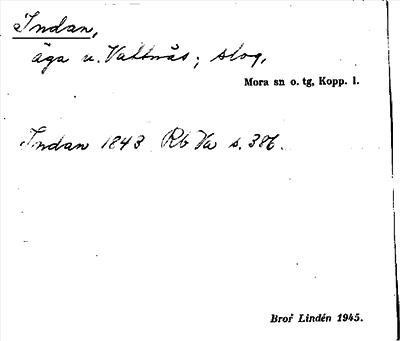 Indan,
äga u. Vattnäs; slog,
Mora sn o. tg, Kopp. l.
Indan 1843 Rb Va s. 386.
Bror Lindén 1945.